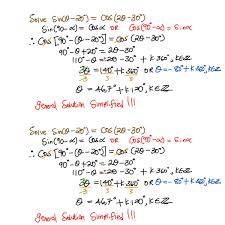 Solve Sin(θ-20°) = Cos(2θ-30°)
Sin(90-α) = Cosα OR Cos(90°-α) = Sinα
∴ Cos[90°-(θ-20°)] = Cos(2θ-30°)
90°-θ+20° = 2θ-30°
110°-θ = 2θ-30° + k360°, k∈Z
3θ = 140° + k360° OR θ = -80° + k360°, k∈Z
3 3 3
θ = 46,7° + k120°, k∈Z
General Solution Simplified !!!
Solve Sin(θ-20°) = Cos(2θ-30°)
Sin(90-α) = Cosα OR Cos(90°-α) = Sinα
∴ Cos[90°-(θ-20°)] = Cos(2θ-30°)
90°-θ+20° = 2θ-30°
110°-θ = 2θ-30° + k360°, k∈Z
3θ = 140° + k360° OR θ = -80° + k360°, k∈Z
3 3 3
θ = 46,7° + k120°, k∈Z
General Solution Simplified !!!